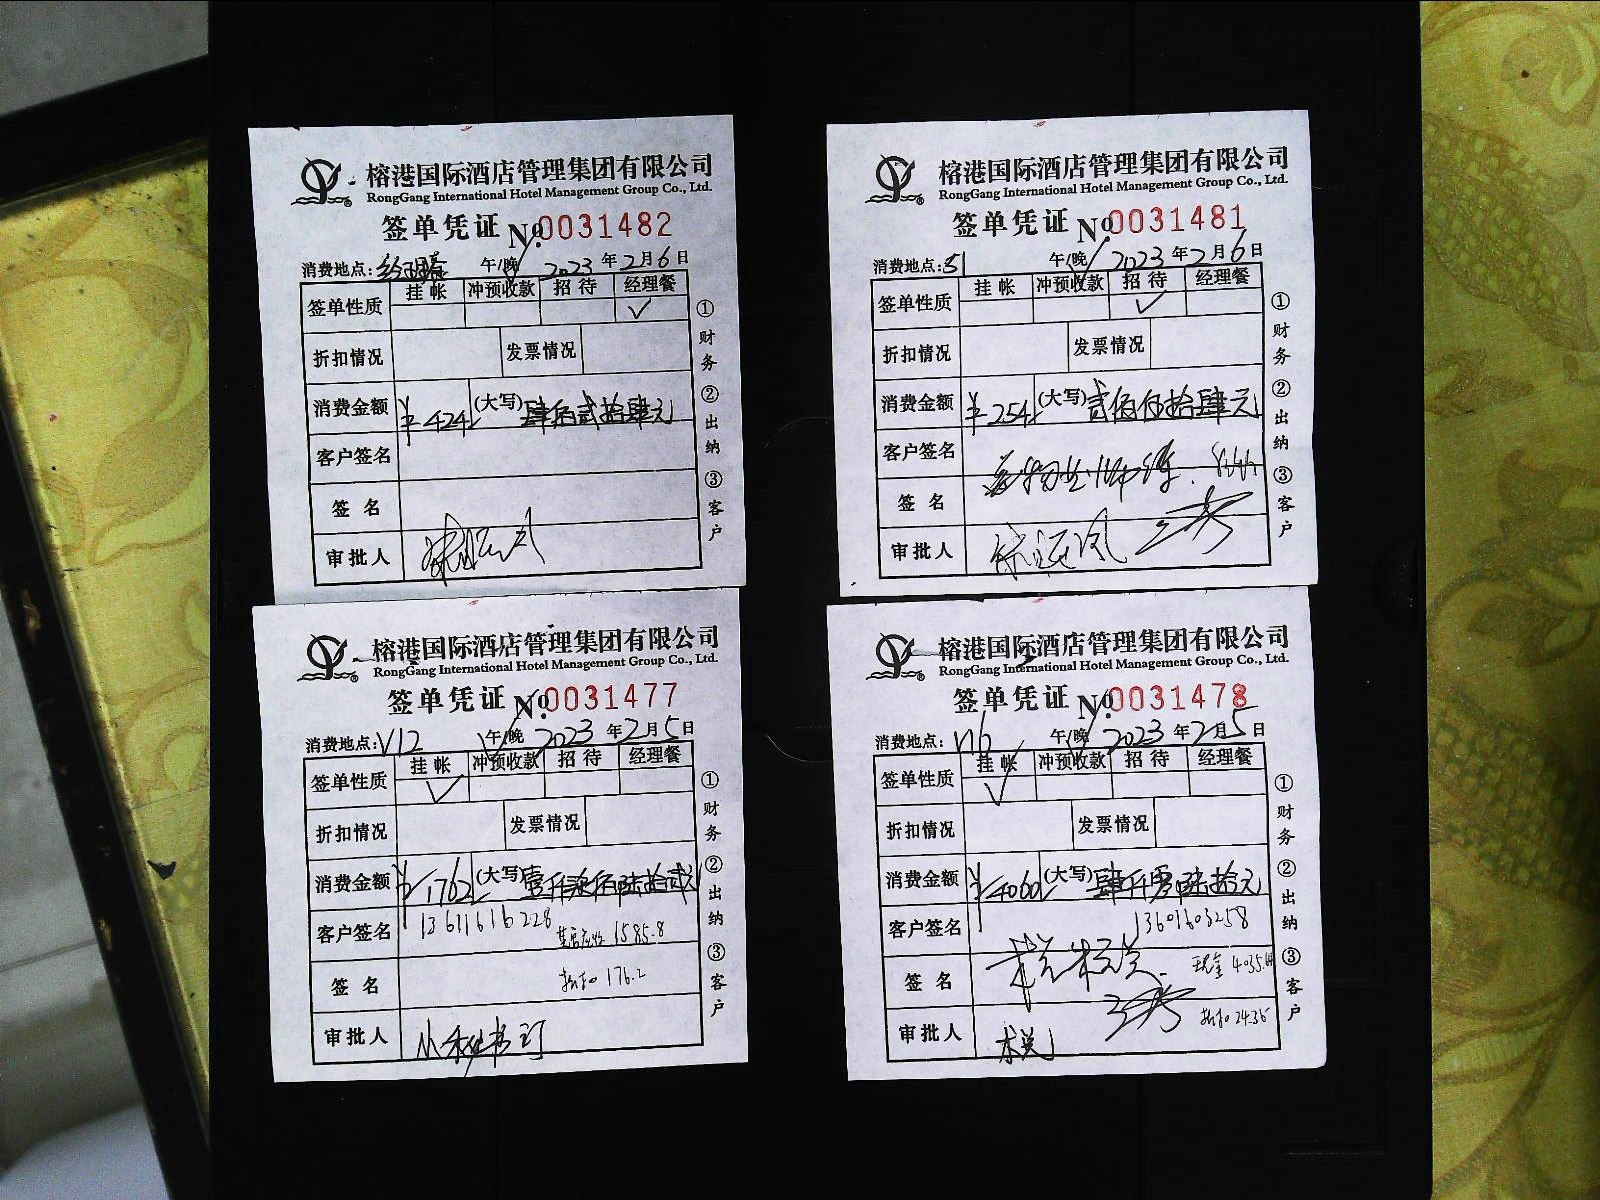 榕港国际酒店管理集团有限公司
RongGang International Hotel Management Group Co., Ltd.
签单凭证 No.0031482
消费地点: 午/晚 2023年2月6日
签单性质 挂帐 冲预收款 招待 经理餐
✓
折扣情况 发票情况
消费金额 ¥424 (大写) 肆佰贰拾肆元
客户签名
签名
审批人
①财务 ②出纳 ③客户
榕港国际酒店管理集团有限公司
RongGang International Hotel Management Group Co., Ltd.
签单凭证 No.0031481
消费地点:51 午/晚 2023年2月6日
签单性质 挂帐 冲预收款 招待 经理餐
✓
折扣情况 发票情况
消费金额 ¥254 (大写) 贰佰伍拾肆元
客户签名
签名
审批人
①财务 ②出纳 ③客户
榕港国际酒店管理集团有限公司
RongGang International Hotel Management Group Co., Ltd.
签单凭证 No.0031477
消费地点:V12 午/晚 2023年2月5日
签单性质 挂帐 冲预收款 招待 经理餐
✓
折扣情况 发票情况
消费金额 ¥1762 (大写) 壹仟柒佰陆拾贰元
客户签名 13611616228
1585.8
签名 折扣 176.2
审批人
①财务 ②出纳 ③客户
榕港国际酒店管理集团有限公司
RongGang International Hotel Management Group Co., Ltd.
签单凭证 No.0031478
消费地点:V16 午/晚 2023年2月5日
签单性质 挂帐 冲预收款 招待 经理餐
✓
折扣情况 发票情况
消费金额 ¥4060 (大写) 肆仟零陆拾元
客户签名 13601603258
签名 现金
审批人 折扣 24.36
①财务 ②出纳 ③客户